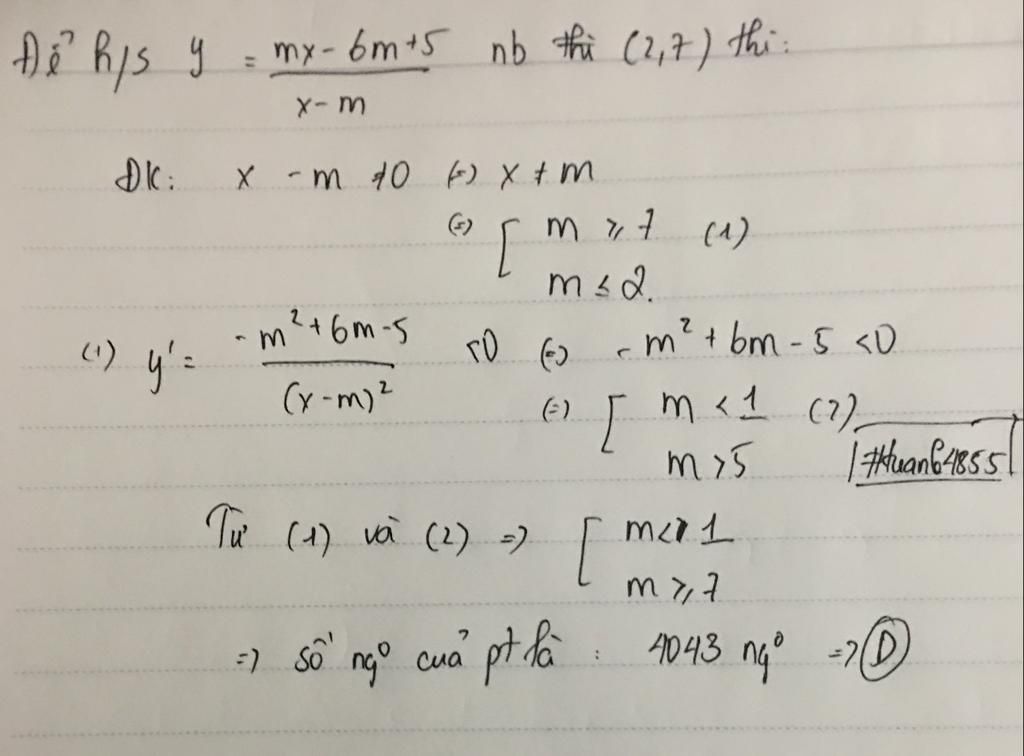 Để h/s y = \frac{mx - 6m + 5}{x - m} nb thì (2,7) thì:
ĐK: x - m ≠ 0 (=) x ≠ m
(=) [ m ≥ 7 (1)
m ≤ 2.
(1) y' = \frac{-m² + 6m - 5}{(x - m)²} < 0 (=) -m² + 6m - 5 < 0
(=) [ m < 1 (2)
m > 5
#tuan64855
Từ (1) và (2) => [ m < 1
m ≥ 7
=> số ngº của pt là : 4043 ngº => D